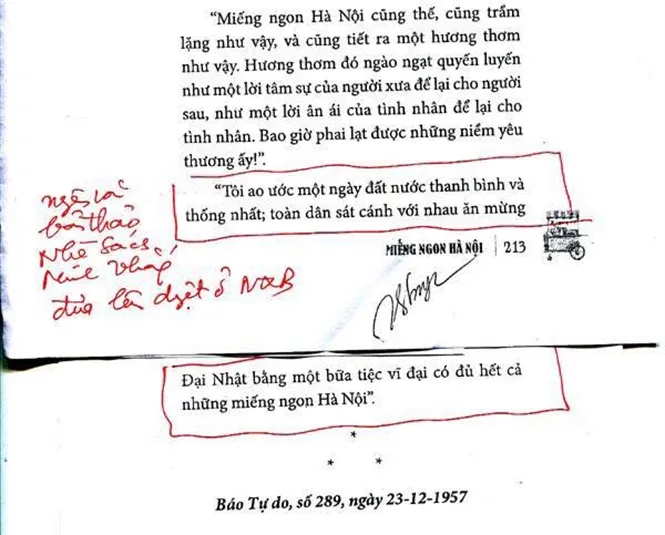 “Miếng ngon Hà Nội cũng thế, cũng trầm
lặng như vậy, và cũng tiết ra một hương thơm
như vậy. Hương thơm đó ngào ngạt quyến luyến
như một lời tâm sự của người xưa để lại cho người
sau, như một lời ân ái của tình nhân để lại cho
tình nhân. Bao giờ phai lạt được những niềm yêu
thương ấy!”.
“Tôi ao ước một ngày đất nước thanh bình và
thống nhất; toàn dân sát cánh với nhau ăn mừng
bản thảo
Nhà Sách
đưa lên duyệt ở NXB
MIẾNG NGON HÀ NỘI | 213
Đại Nhật bằng một bữa tiệc vĩ đại có đủ hết cả
những miếng ngon Hà Nội”.
*
* *
Báo Tự do, số 289, ngày 23-12-1957